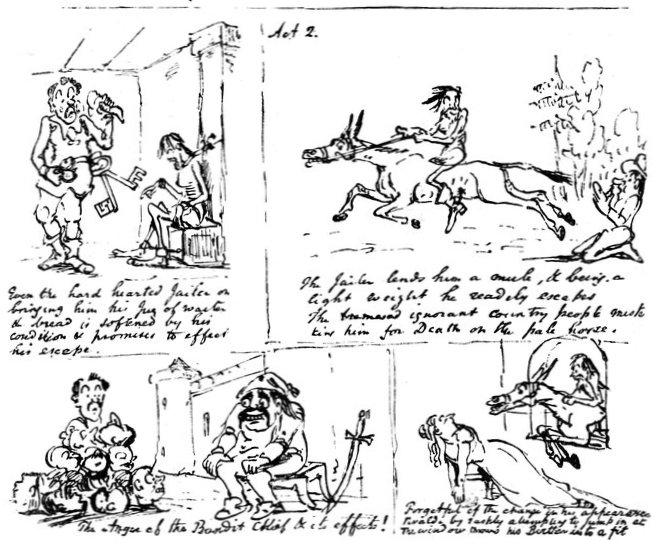 Act 2.
Even the hard hearted Jailer on
bringing him his Jug of water
& bread is softened by his
condition & promises to effect
his escape.
The Jailer lends him a mule, & being a
light weight he readily escapes
The ignorant country people mista
king him for Death on the pale horse.
The Anger of the Bandit Chief & its effects!
Forgetful of the change in his appearance
by rashly attempting to jump in at
window throws his into a fit